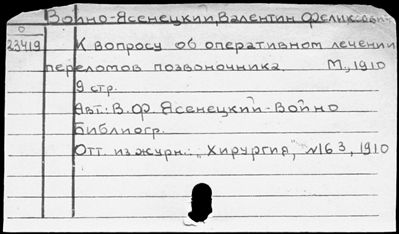 Войно-Ясенецкий, Валентин Феликсович
О
23419
К вопросу об оперативном лечении
переломов позвоночника. М., 1910
9 стр.
Авт.: В.Ф. Ясенецкий-Войно
Библиогр.
Отт. из журн.: „Хирургия", №163, 1910